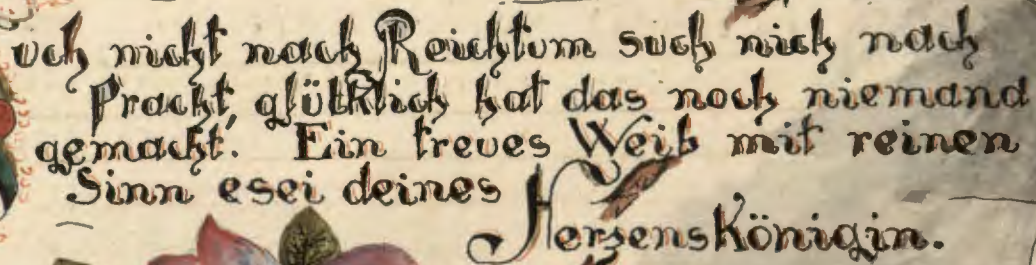 uch nicht nach Reichtum such nich nach
Pracht, glütklich hat das noch niemand
gemacht. Ein treues Weib mit reinen
Sinn esei deines
Herzenskönigin.